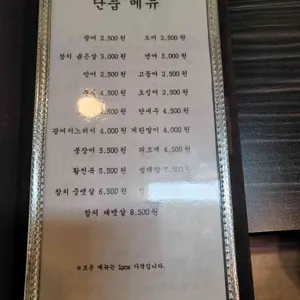 단품 메뉴
광어 2,500원 도미 2,500원
참치 붉은살 3,000원 연어 3,000원
방어 2,500원 고등어 2,500원
4,500원 오징어 2,500원
4,500원 단새우 4,500원
광어지느러미 4,000원 계란말이 4,000원
붕장어 5,500원 4,500원
황전복 5,500원 7,500원
참치 중뱃살 6,500원
참치 대뱃살 8,500원
※모든 메뉴는 1pcs 가격입니다.